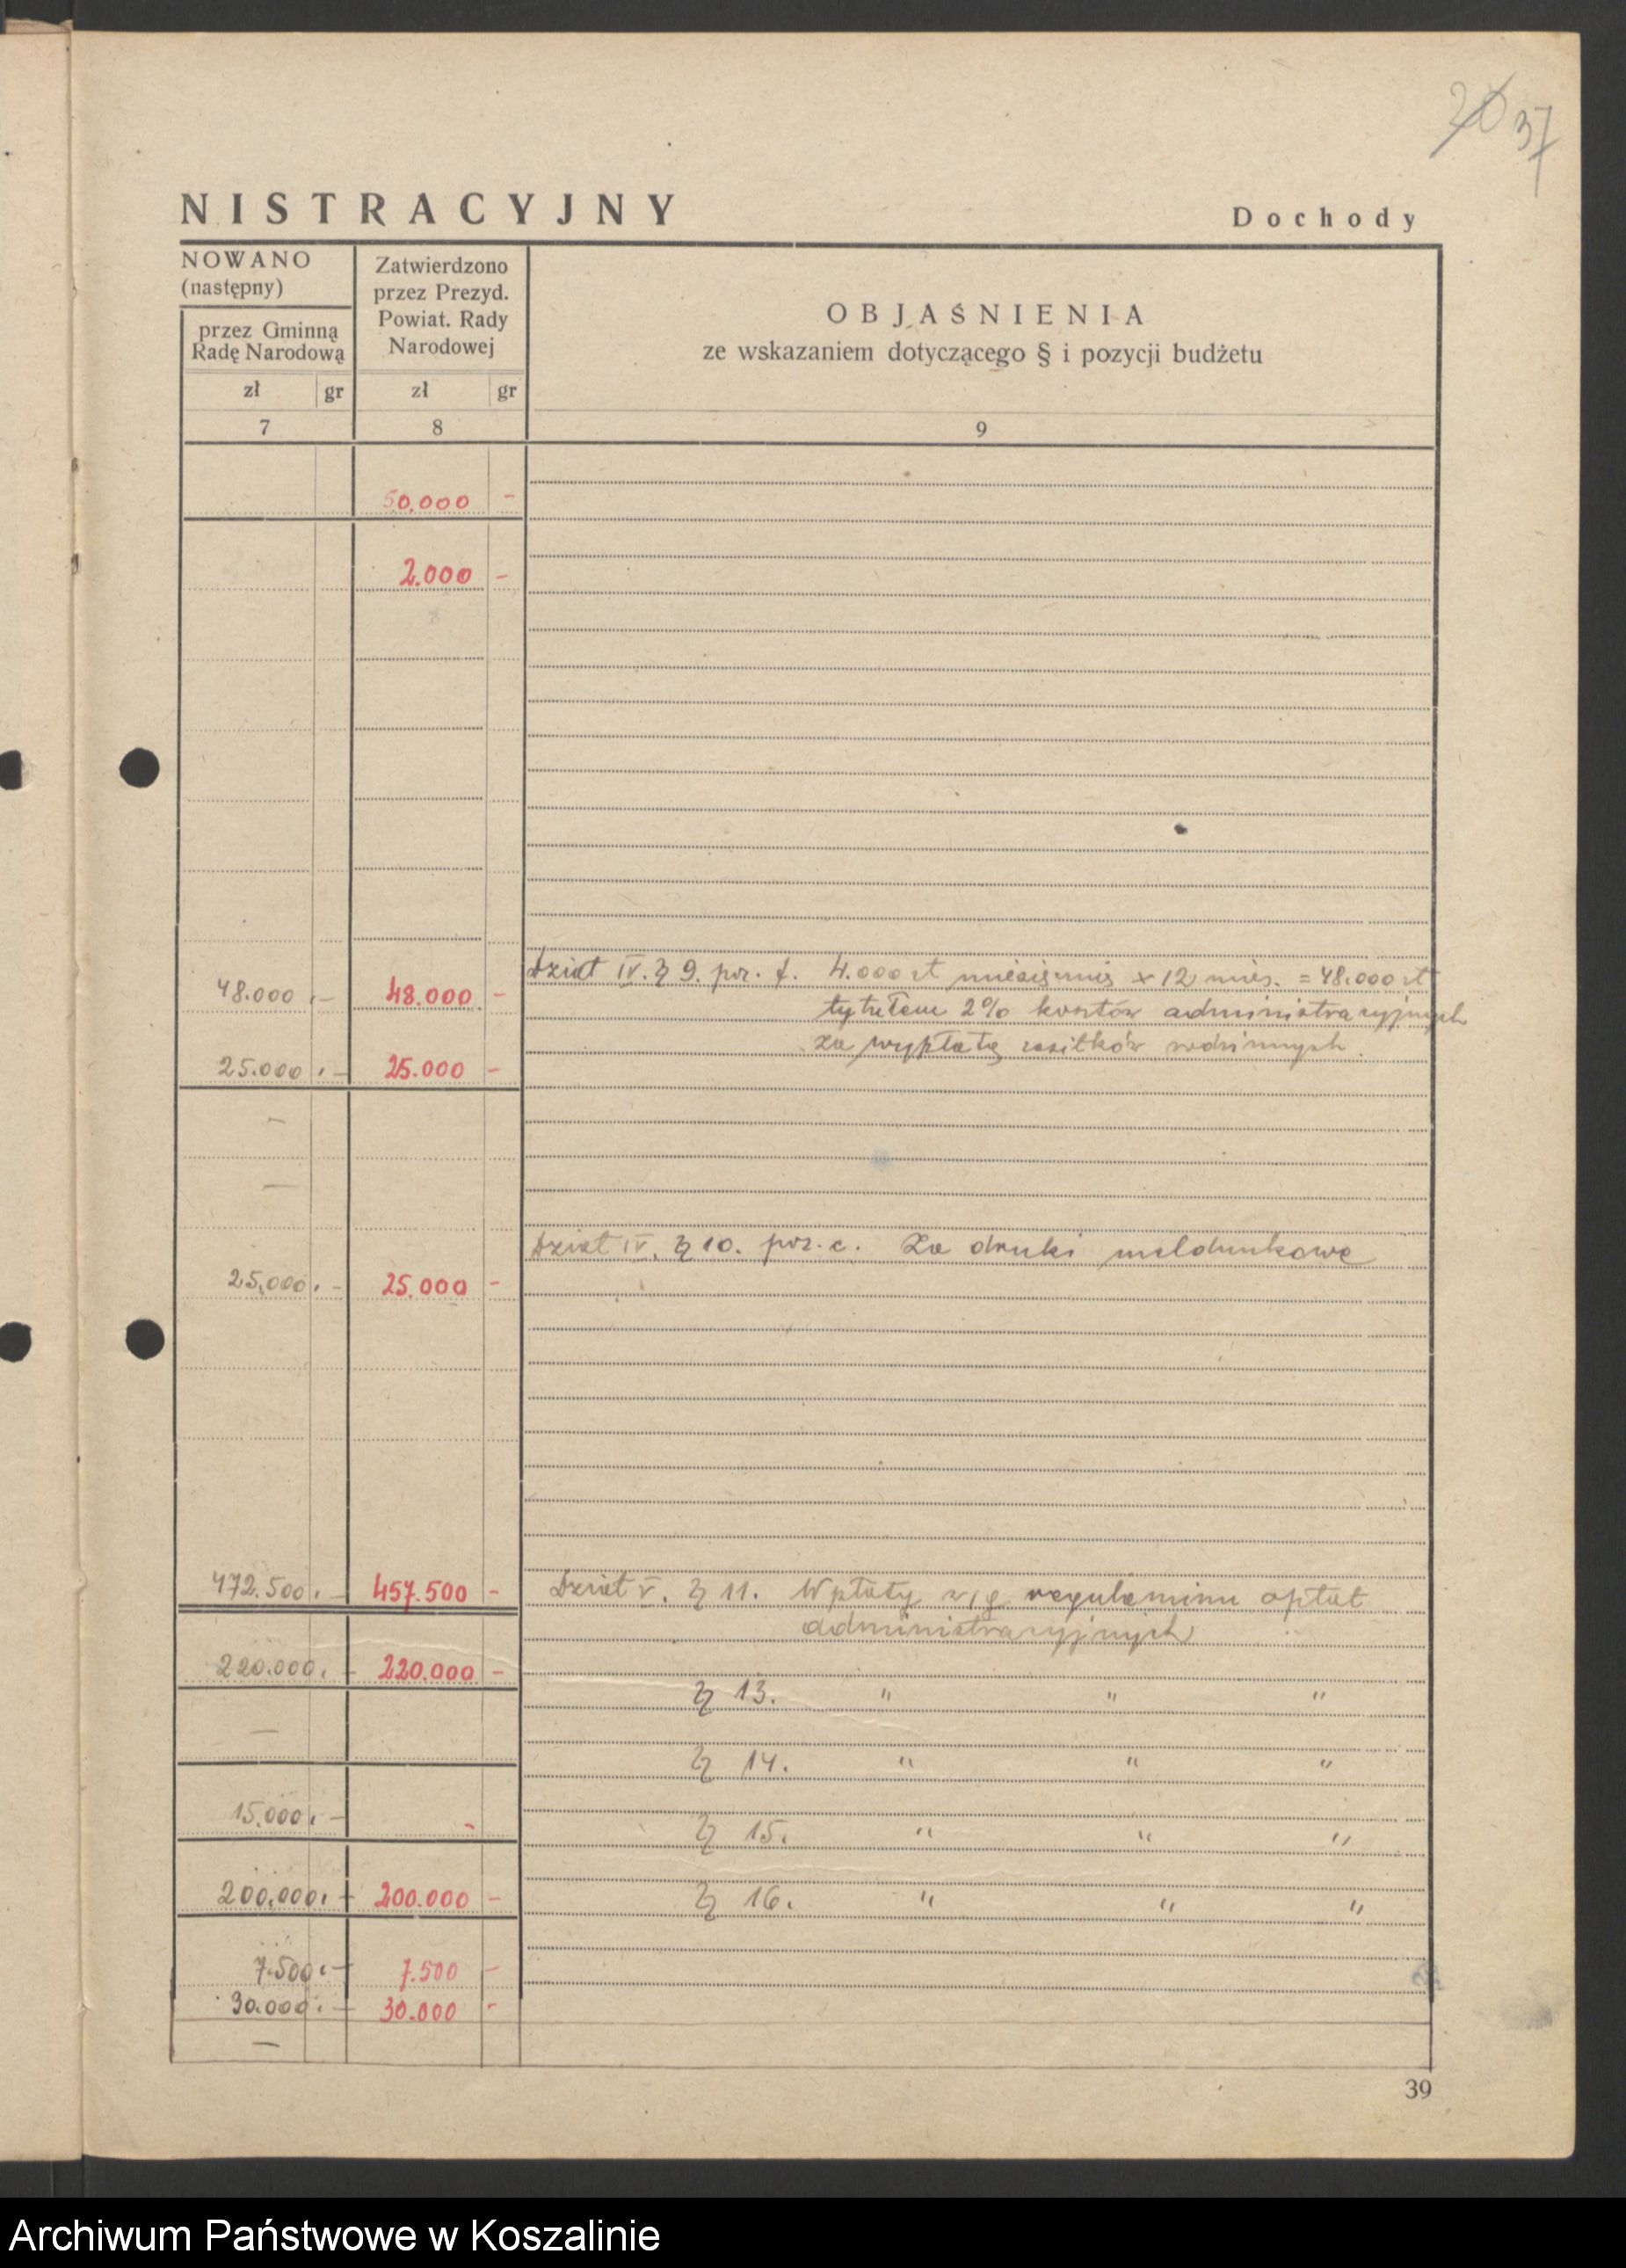 20 37
NISTRACYJNY
Dochody
NOWANO
(następny)
przez Gminną
Radę Narodową
zł gr
7
Zatwierdzono
przez Prezyd.
Powiat. Rady
Narodowej
zł gr
8
OBJAŚNIENIA
ze wskazaniem dotyczącego § i pozycji budżetu
9
50.000 -
2.000 -
Dział IV. § 9. poz. f. 4.000 zł miesięcznie x 12 mies. = 48.000 zł
48.000.- 48.000 -
tytułem 2% kosztów administracyjnych
za wypłatę zasiłków rodzinnych.
25.000.- 25.000 -
—
—
Dział IV. § 10. poz. c. Za druki meldunkowe
25.000.- 25.000 -
472.500.- 457.500 - Dział V. § 11. Wpłaty w/g regulaminu opłat
administracyjnych
220.000.- 220.000 -
§ 13. " " "
—
§ 14. " " "
15.000.- -
§ 15. " " "
200.000.- 200.000 - § 16. " " "
7.500.- 7.500 -
30.000.- 30.000 -
—
39
Archiwum Państwowe w Koszalinie